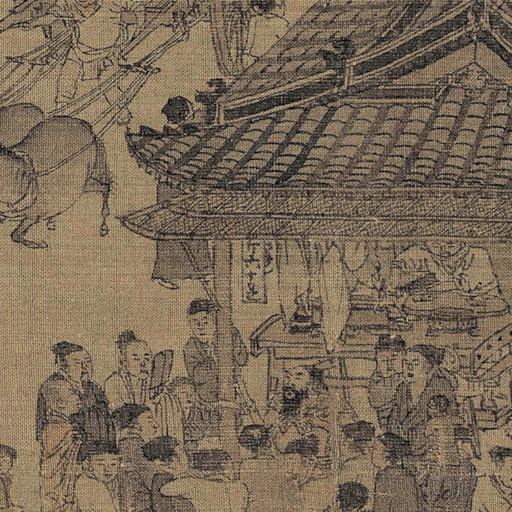 斤六十足